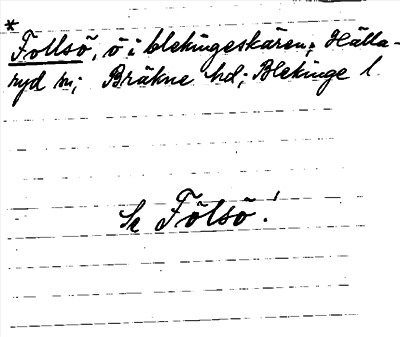 *
Follsö, ö i blekingeskären; Hälla-
ryd sn; Bräkne hd; Blekinge l.
Se Fölsö!